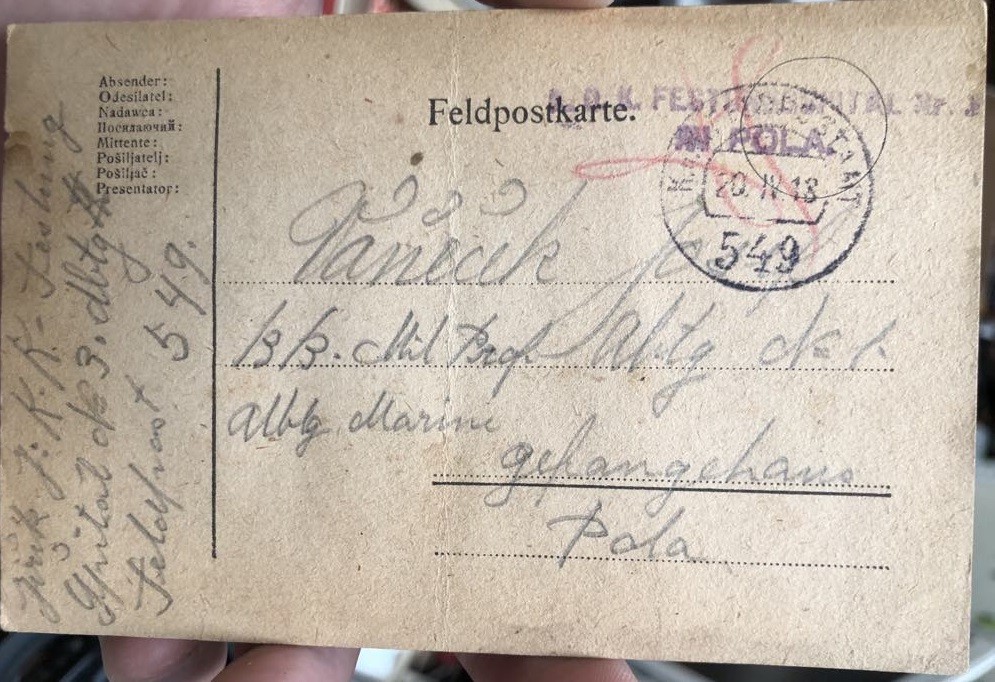 Absender:
Odesílatel:
Nadawca:
Посилаючий:
Mittente:
Pošiljatelj:
Pošiljač:
Presentator:
Feldpostkarte.
K. FESTUNGSSPITAL Nr. 3
IN POLA.
20 IV 18
549
Vaněček
k. k. Mil
Abtg
Abtg. Marine
gefangehaus
Pola
Jiřik J: K. K. Festung
Spital No 3. Abtg
Feldpost 549.